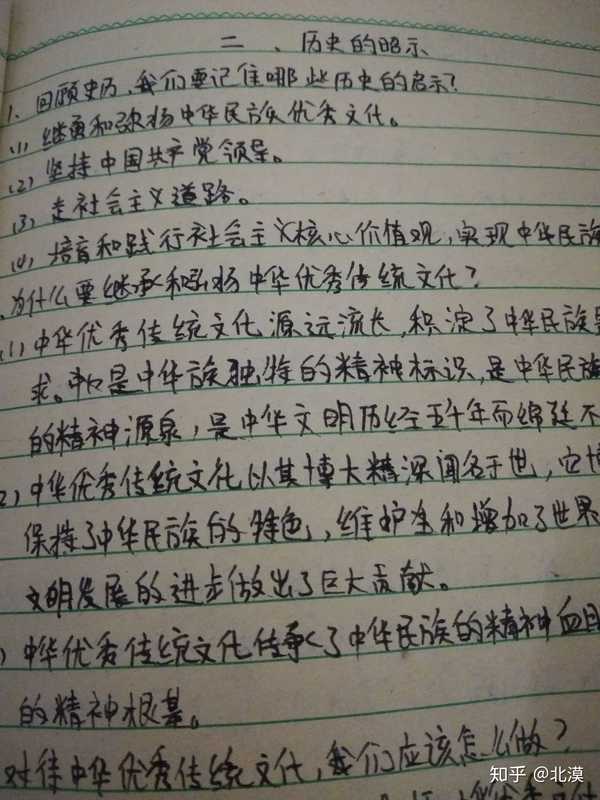 二、历史的昭示
1、回顾史历,我们要记住哪些历史的启示?
(1) 继承和弘扬中华民族优秀文化。
(2) 坚持中国共产党领导。
(3) 走社会主义道路。
(4) 培育和践行社会主义核心价值观,实现中华民族
为什么要继承和弘扬中华优秀传统文化?
(1) 中华优秀传统文化源远流长,积淀了中华民族
求。中是中华族独特的精神标识,是中华民族
的精神源泉,是中华文明历经五千年而绵延不
2) 中华优秀传统文化以其博大精深闻名于世,它
保持了中华民族的特色,维护和增加了世界
文明发展的进步做出了巨大贡献。
) 中华优秀传统文化传承了中华民族的精神血
的精神根基。
对待中华优秀传统文化,我们应该怎么做?
知乎 @北漠